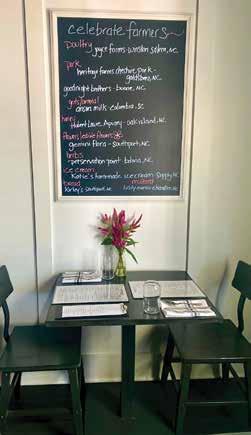 celebrate farmers
poultry
joyce farms - winston salem, NC
pork
heritage farms cheshire pork -
goldsboro, NC
goodnight brothers - boone, NC
grits/oatmeal
anson mills - columbia, SC
honey
Apiary - oak island, NC
flowers/edible flowers
gemini flora - southport, NC
herbs
preservation point - bolivia, NC
ice cream
Katie's homemade ice cream supply NC
bread
mustard
Southport, NC
lusty monk